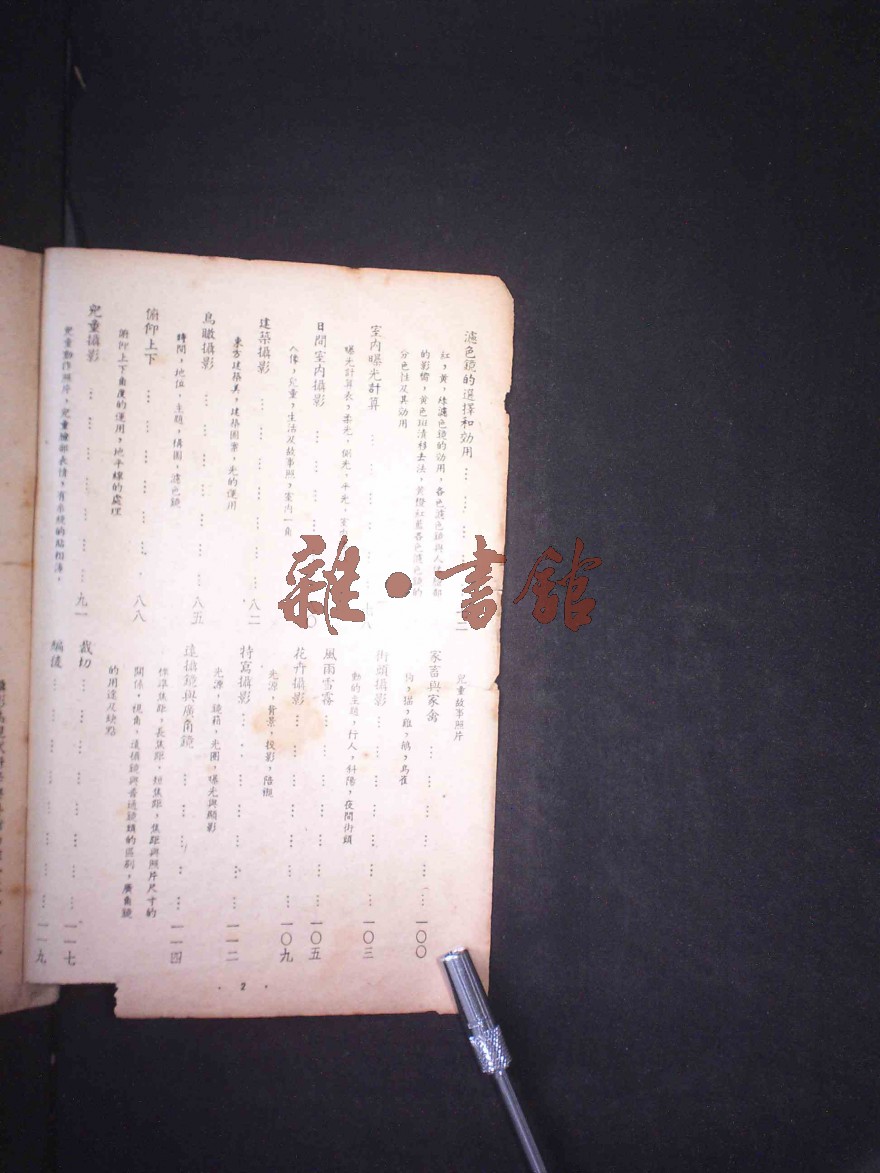 濾色鏡的選擇和効用
紅，黃，綠濾色鏡的効用，各色濾色鏡與人像臉部
的影響，黃色斑漬移去法，黃橙紅藍各色濾色鏡的
分色性及其効用
室內曝光計算
曝光計算表，柔光，側光，平光，室
日間室內攝影
人像，兒童，生活及故事照，室內一角
建築攝影 八二
東方建築美，建築圖案，光的運用
鳥瞰攝影 八五
時間，地位，主題，構圖，濾色鏡
俯仰上下 八八
俯仰上下角度的運用，地平線的處理
兒童攝影 九一
兒童動作照片，兒童臉部表情，有系統的貼相簿，
兒童故事照片
家畜與家禽 一〇〇
狗，猫，雞，鴿，鳥雀
街頭攝影 一〇三
動的主題，行人，斜陽，夜間街頭
風雨雪霧 一〇五
花卉攝影 一〇九
光源，背景，投影，陪襯
特寫攝影 一一二
光源，鏡箱，光圈，曝光與顯影
遠攝鏡與廣角鏡 一一四
標準焦距，長焦距，短焦距，焦距與照片尺寸的
關係，視角，遠攝鏡與普通鏡頭的區別，廣角鏡
的用途及缺點
裁切 一一七
編後 一一九
· 2 ·
雜·書館